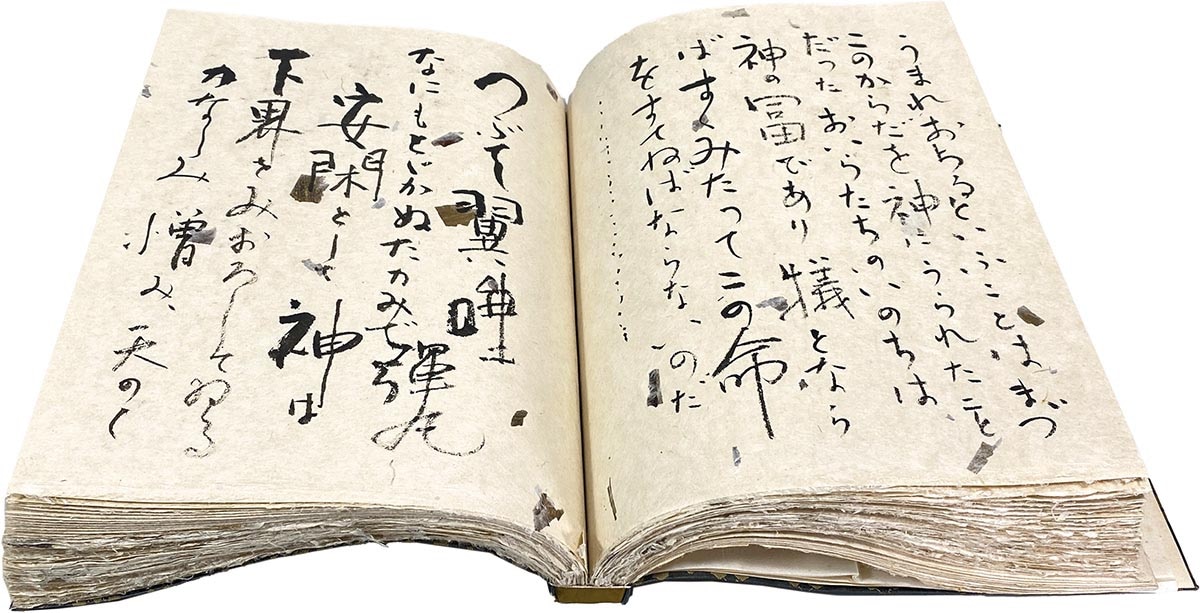 うまれおちるといふことはまづ
このからだを神にうられたこと
だったおいらたちのいのちは
神の富であり犠となら
ばすゝみたってこの命
をすてねばならないのだ
……………
つぶて 翼、唾、弾丸
なにもとゞかぬたかみで
安閑として神は
下界をみおろしてゐる
かなしみ 憎み、天のく